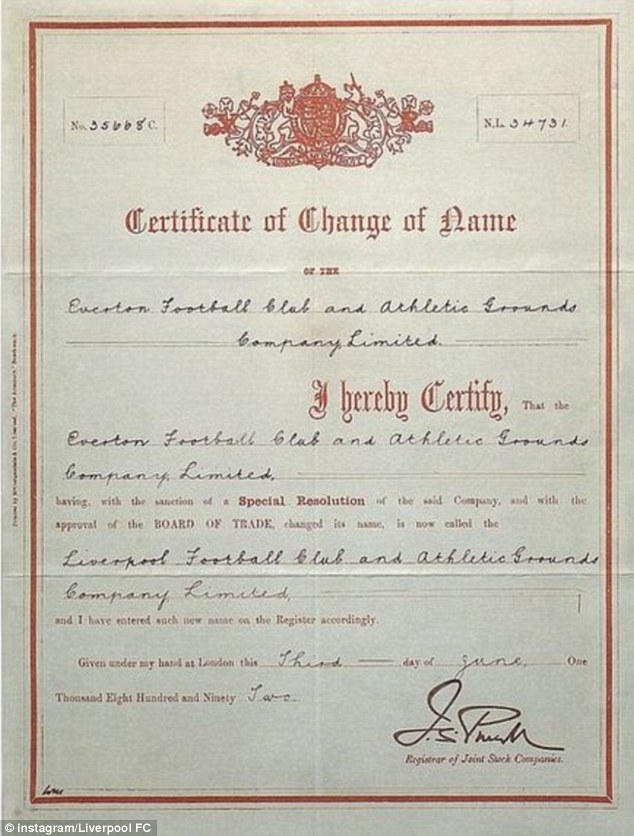 No. 35668 C.
N.L. 34731.
Certificate of Change of Name
OF THE
Everton Football Club and Athletic Grounds
Company, Limited.
I hereby Certify, That the
Everton Football Club and Athletic Grounds
Company, Limited,
having, with the sanction of a Special Resolution of the said Company, and with the
approval of the BOARD OF TRADE, changed its name, is now called the
Liverpool Football Club and Athletic Grounds
Company, Limited,
and I have entered such new name on the Register accordingly.
Given under my hand at London this Third day of June, One
Thousand Eight Hundred and Ninety Two.
Registrar of Joint Stock Companies.
© instagram/Liverpool FC